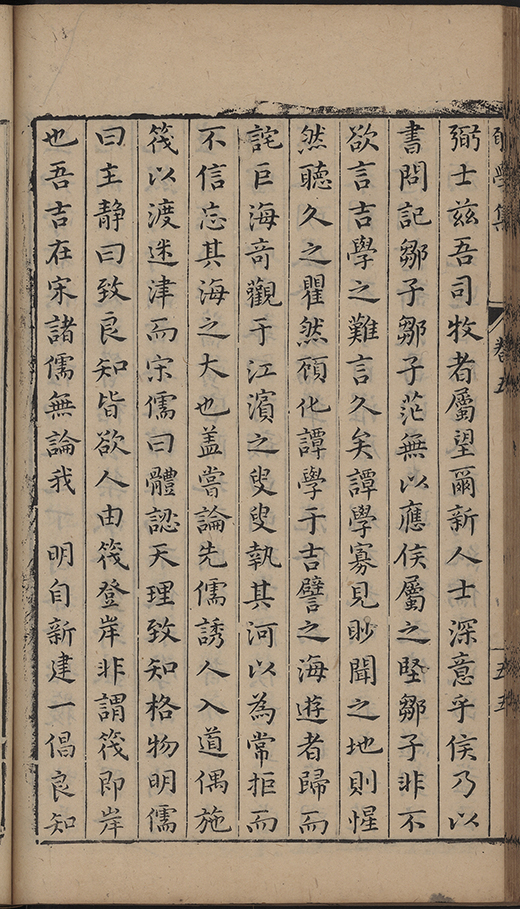 學集 卷五 五五
弼士兹吾司牧者屬望爾新人士深意乎侯乃以
書問記鄒子鄒子茫無以應侯屬之堅鄒子非不
欲言吉學之難言久矣譚學寡見眇聞之地則惺
然聽久之瞿然頋化譚學于吉譬之海逰者歸而
詫巨海竒觀于江濱之叟叟執其河以為常拒而
不信忘其海之大也盖嘗論先儒誘人入道偶施
筏以渡迷津而宋儒曰體認天理致知格物明儒
曰主静曰致良知皆欲人由筏登岸非謂筏即岸
也吾吉在宋諸儒無論我　明自新建一倡良知